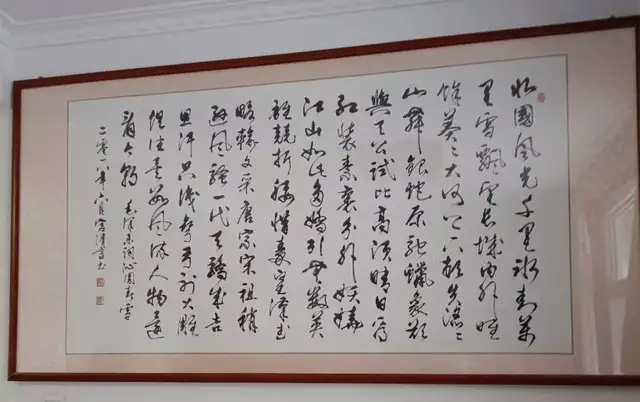 北國風光千里冰封萬
里雪飄望長城內外唯
餘莽々大河上下頓失滔々
山舞銀蛇原馳蠟象欲
與天公試比高須晴日看
紅裝素裹分外妖嬈
江山如此多嬌引無數英
雄競折腰惜秦皇漢武
略輸文采唐宗宋祖稍
遜風騷一代天驕成吉
思汗只識彎弓射大雕
俱往矣數風流人物還
看今朝 毛澤東詞沁園春雪
二零一八年